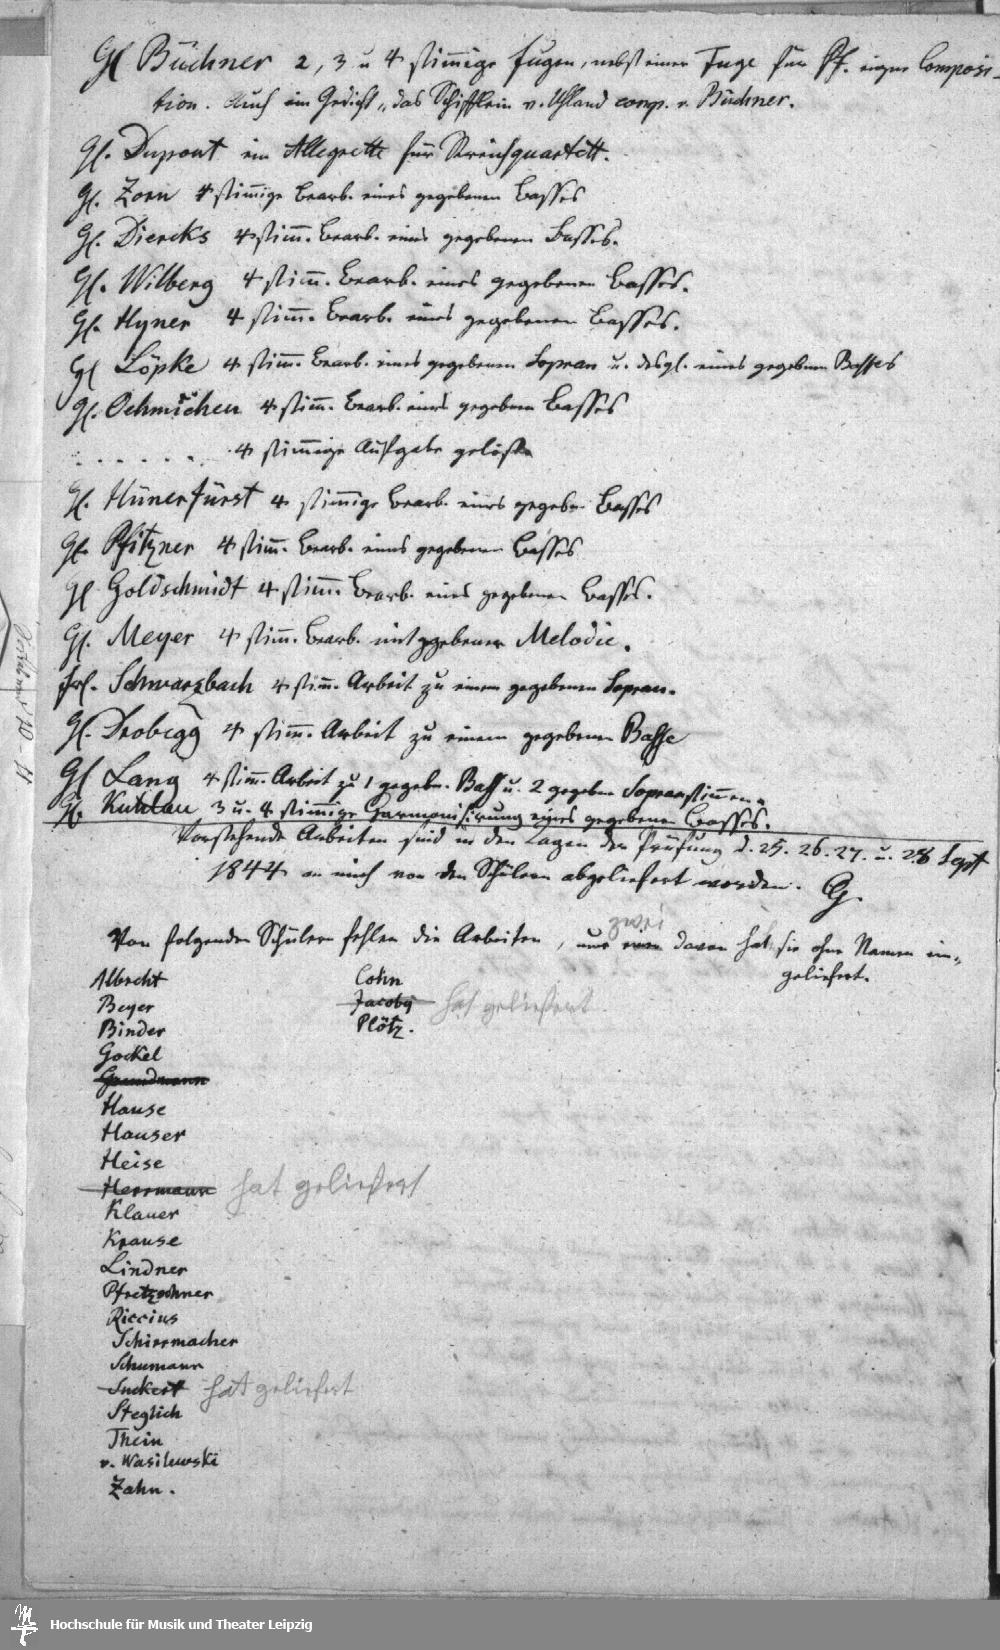 H. Büchner 2, 3 u 4 stimmige Fugen, nebst einer Fuge für Pf. eigne Composi-
tion. Auch ein Gedicht „das Schifflein v. Uhland comp. v. Büchner.
H. Dupont ein Allegretto für Streichquartett.
H. Zorn 4 stimmige Bearb. eines gegebenen Basses
H. Diercks 4 stimm. Bearb. eines gegebenen Basses.
H. Wilberg 4 stimm. Bearb. eines gegebenen Basses.
H. Hyner 4 stimm. Bearb. eines gegebenen Basses.
H. Löpke 4 stimm. Bearb. eines gegebenen Sopran u. desgl. eines gegebnen Basses
H. Oehmichen 4 stimm. Bearb. eines gegebnen Basses
. . . . . . . 4 stimmige Aufgabe gelöst
H. Hünerfürst 4 stimmige Bearb. eines gegeben Basses
H. Pfitzner 4 stimm. Bearb. eines gegebenen Basses
H. Goldschmidt 4 stimm. Bearb. eines gegebenen Basses.
H. Meyer 4 stimm. Bearb. mit ggebener Melodie.
Frl. Schwarzbach 4 stimm. Arbeit zu einem gegebenen Sopran.
H. Drobegg 4 stimm. Arbeit zu einem gegebenen Basse
H. Lang 4 stimm. Arbeit zu 1 gegeben. Baß u. 2 gegeben Sopranstimmen.
H. Kuhlau 3 u. 4 stimmige Harmonisirung eines gegebenen Basses.
Vorstehende Arbeiten sind in den Tagen der Prüfung d. 25. 26. 27. u. 28 Sept
1844 an mich von den Schülern abgeliefert worden. G.
Von folgenden Schülern fehlen die Arbeiten, nur zwei davon hat sie ohne Namen ein-
geliefert.
Albrecht Cohn
Beyer Jacoby hat geliefert
Binder Plötz.
Gockel
Grundmann
Hause
Hauser
Heise
Herrmann hat geliefert
Klauer
Krause
Lindner
Pfretzschner
Riccius
Schirrmacher
Schumann
Suckert hat geliefert
Steglich
Thein
v. Wasilewski
Zahn.
Hochschule für Musik und Theater Leipzig